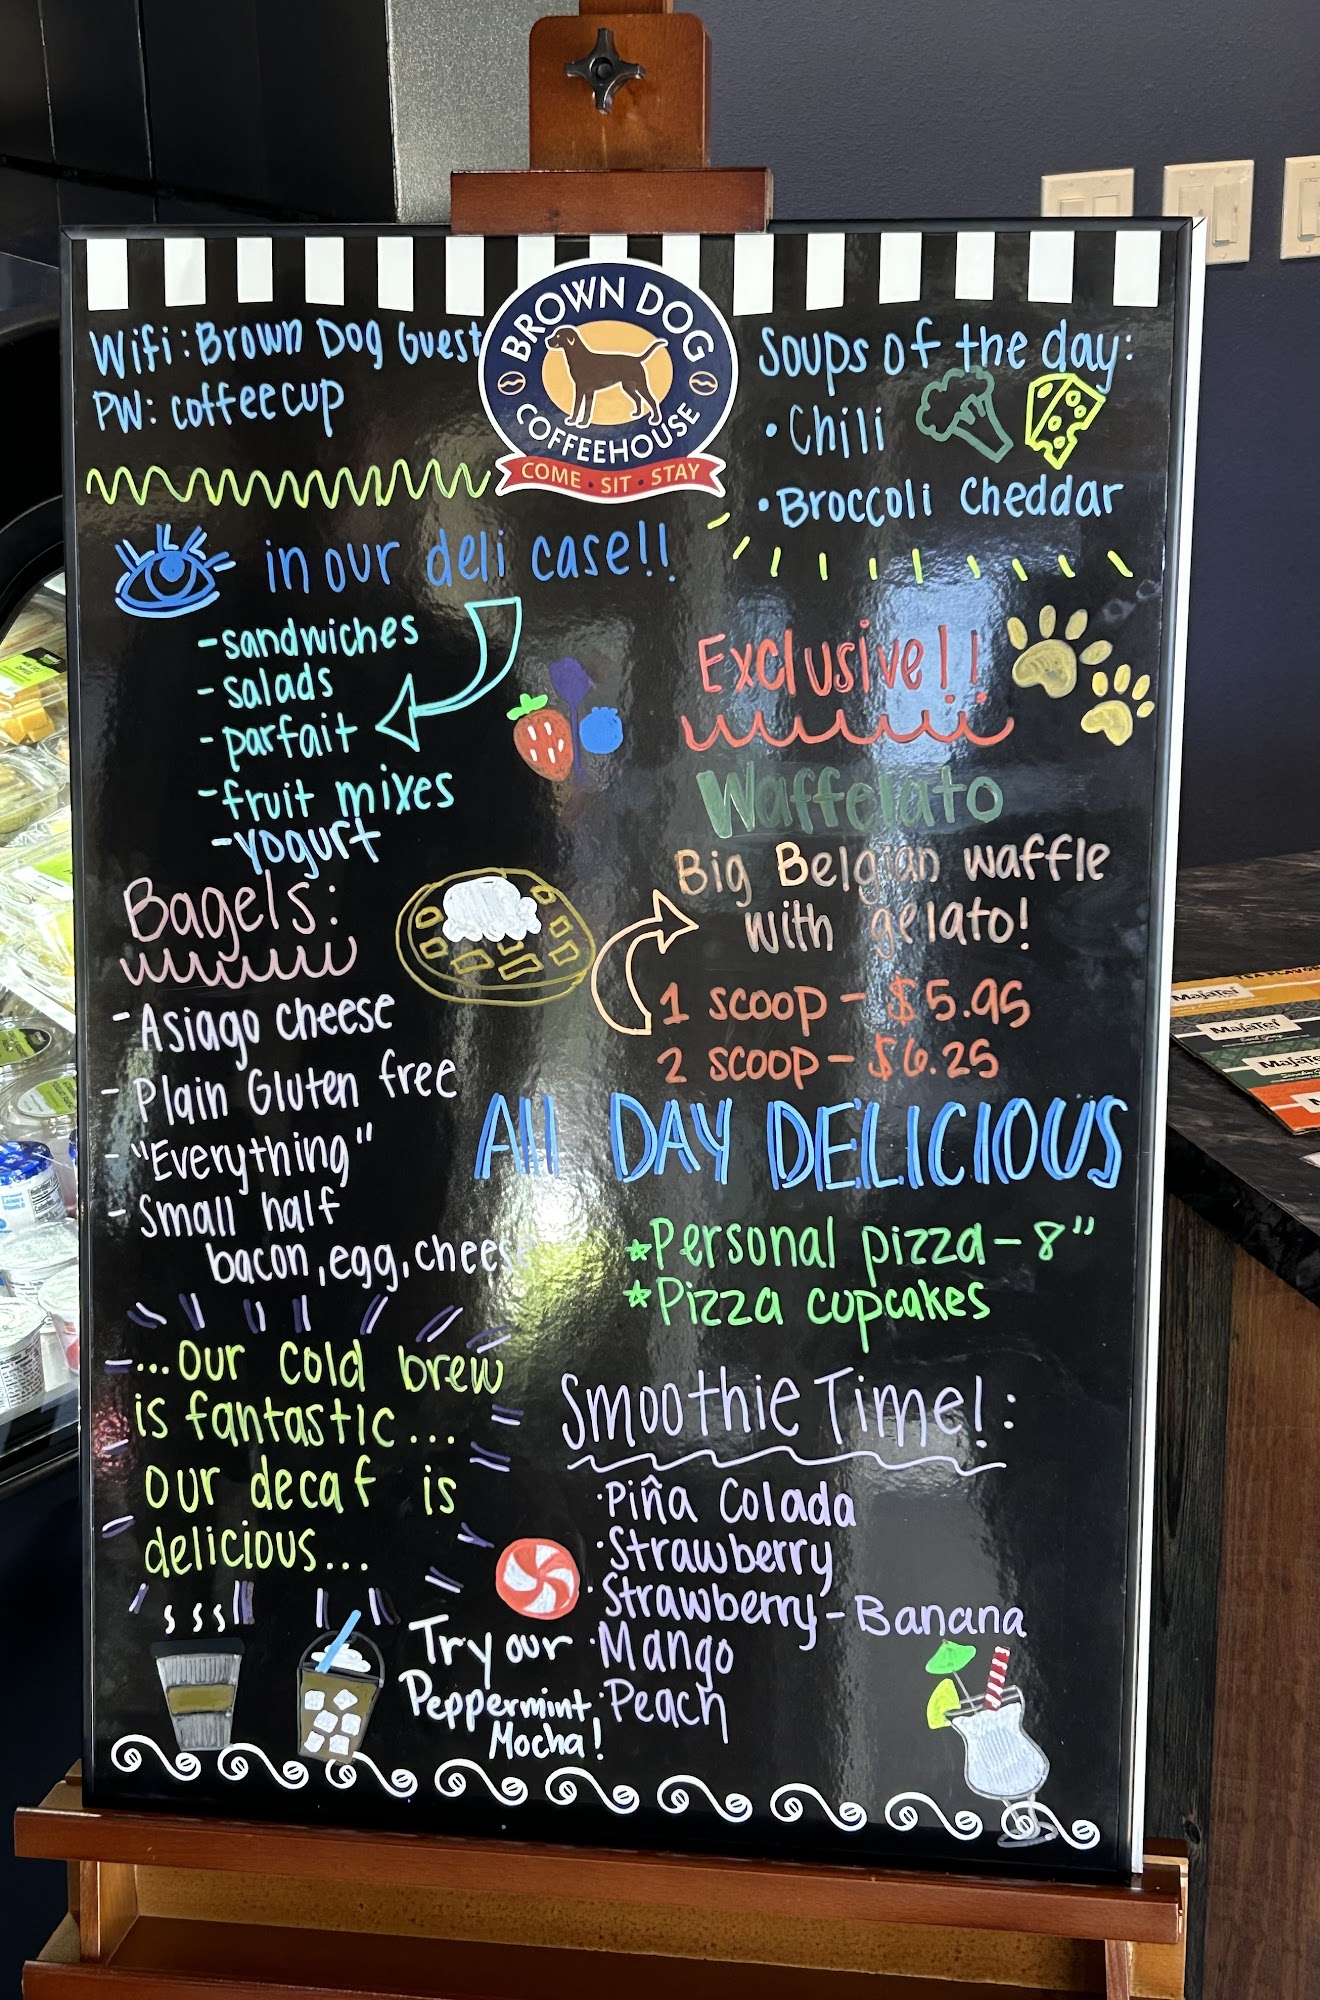 BROWN DOG
COFFEEHOUSE
COME • SIT • STAY
Wifi: Brown Dog Guest
PW: coffeecup
Soups of the day:
• Chili
• Broccoli Cheddar
in our deli case!!
- sandwiches
- salads
- parfait
- fruit mixes
- yogurt
Exclusive!!
Waffelato
Big Belgian waffle
with gelato!
1 scoop - $5.95
2 scoop - $6.25
Bagels:
- Asiago cheese
- Plain Gluten free
- "Everything"
- Small half
bacon, egg, cheese
All DAY DELICIOUS
* Personal pizza - 8"
* Pizza cupcakes
...our cold brew
is fantastic...
our decaf is
delicious...
Smoothie Time!:
• Piña Colada
• Strawberry
• Strawberry - Banana
• Mango
• Peach
Try our
Peppermint
Mocha!
MajaTei
MajaTei
MajaTei